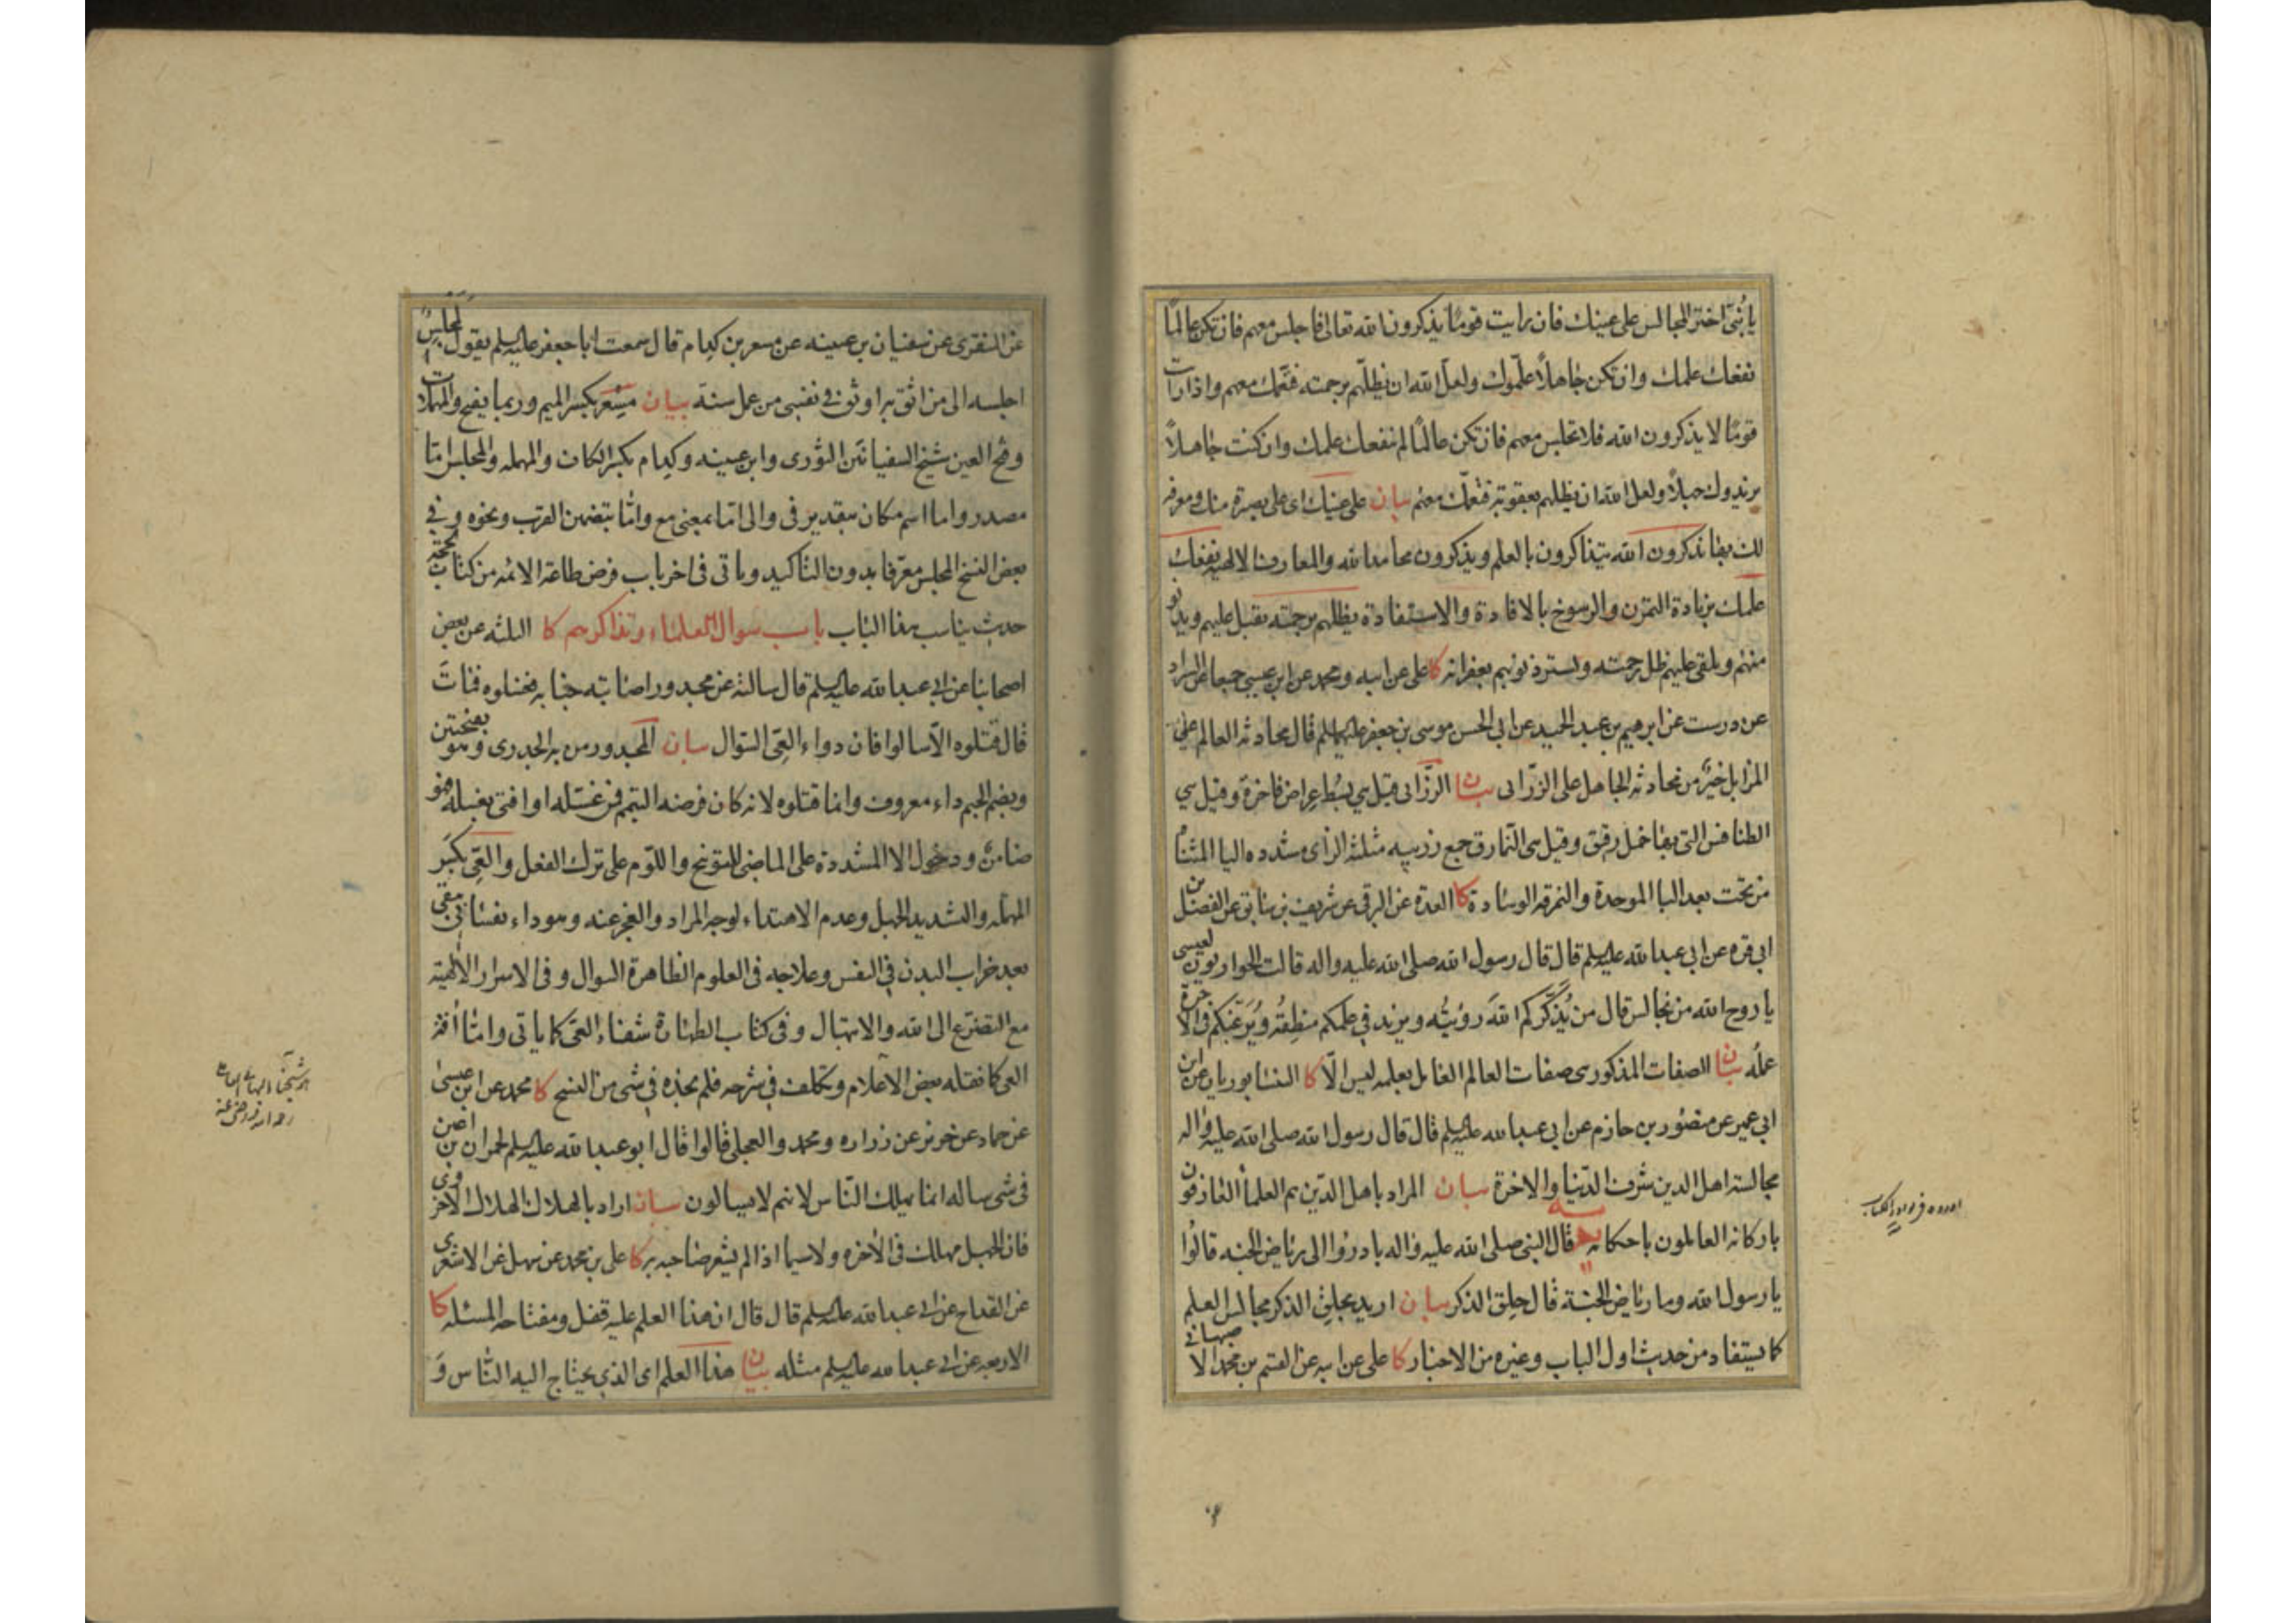 يا بُنيّ اختر المجالس على عينك فان رايت قومًا يذكرون الله تعالى فاجلس معهم فان تكن عالمًا
نفعك علمك وان تكن جاهلاً علّموك ولعلّ الله ان يظلّهم برحمته فتعمّك معهم واذا رايت
قومًا لا يذكرون الله فلا تجلس معهم فان تكن عالمًا لم ينفعك علمك وان كنت جاهلاً
يزيدوك جهلاً ولعل الله ان يظلهم بعقوبة فتعمّك معهم بيان على عينك اى على بصيرة منك ومعرفة
لك بها يذكرون الله يتذاكرون بالعلم ويذكرون محامد الله والمعارف الالهية نفعك
علمك بزيادة التمرّن والرسوخ بالافادة والاستفادة يظلهم برحمته يقبل عليهم ويدنو
منهم ويلقى عليهم ظل رحمته ويستر ذنوبهم بغفرانه كا على عن ابيه ومحمد عن ابن عيسى جميعا عن السراد
عن درست عن ابرهيم بن عبد الحميد عن ابى الحسن موسى بن جعفر عليهما السلم قال محادثة العالم على
المزابل خيرٌ من محادثة الجاهل على الزرّابى بيان الزرّابى قيل هي بُسُط عراض فاخرة وقيل هي
الطنافس التى بها خمل رقيق وقيل هى النمارق جمع زربيه مثلثة الزاى مشدده اليا المثناة
من تحت بعد البا الموحدة والنمرقه الوسادة كا العدة عن البرقى عن شريف بن سابق عن الفضل بن
ابى قره عن ابى عبد الله عليه السلم قال قال رسول الله صلى الله عليه واله قالت الحواريون لعيسى
يا روح الله من نجالس قال من يُذكّركم اللهَ رؤيتُه ويزيد في علمكم منطِقُه ويُرغّبكم في الاخرة
عملُه بيان الصفات المذكوره هى صفات العالم العامل بعلمه ليس الّا كا النيسابوريان عن ابن
ابى عمير عن منصور بن حازم عن ابى عبد الله عليه السلم قال قال رسول الله صلى الله عليه واله
مجالسة اهل الدين شرف الدّنيا والاخرة بيان المراد باهل الدّين هم العلمآ العارفون
باركانه العالمون باحكامه يه قال النبى صلى الله عليه واله بادروا الى رياض الجنه قالُوا
يا رسول الله وما رياض الجنّة قال حِلق الذكر بيان اريد بحِلق الذكر مجالس العلم
كما يستفاد من حديث اول الباب وغيره من الاخبار كا على عن ابيه عن القسم بن محمد الاصبهانى
عن المنقرى عن سفيان بن عيينه عن مسعر بن كدام قال سمعت ابا جعفر عليه السلم يقول لمجلسٌ
اجلسه الى من اثق به اوثق فى نفسى من عمل سنة بيان مِسْعر بكسر الميم وربما يفتح والمهملات
وفتح العين شيخ السفيانَين الثورى وابن عيينه وكدام بكسر الكاف والمهمله والمجلس امّا
مصدر واما اسم مكان بتقدير فى والى امّا بمعنى مع وامّا بتضمن القرب ونحوه وفي
بعض النسخ المجلس معرّفا بدون التاكيد وياتى فى اخر باب فرض طاعة الائمه من كتاب الحجّة
حديث يناسب هذا الباب باب سوال العلماء وتذاكرهم كا الثلثه عن بعض
اصحابنا عن ابى عبد الله عليه السلم قال سالته عن مجدور اصابته جنابه فغسلوه فماتَ
قال قتلوه الّا سالوا فان دواء العِيّ السّؤال بيان المجدور من به الجدرى وهو بفتحتين
وبضم الجيم داء معروف وانما قتلوه لانه كان فرضه التيمم فمن غسّله او افتى بغسله فهو
ضامنٌ ودخول الا المشددة على الماضى للتوبيخ واللّوم على ترك الفعل والعِيّ بكسر
المهمله والتشديد الجهل وعدم الاهتداء لوجه المراد والعجز عنه وهو داء نفسانىّ يبقى
بعد خراب البدن فى النفس وعلاجه فى العلوم الظاهرة السوال وفى الاسرار الالهيّة
مع التضرّع الى الله والابتهال وفى كتاب الطهارة شفاء العىّ كما ياتى وامّا آفة
العى كما نقله بعض الاعلام وتكلف فى شرحه فلم نجده فى شى من النسخ كا محمد عن ابن عيسى
عن حماد عن حريز عن زراره ومحمد والعجلى قالوا قال ابو عبد الله عليه السلم لحمران بن اعين
فى شى ساله انما يهلك النّاس لانهم لا يسالون بيان اراد بالهلاك الهلاك الاخروى
فان الجهل مهلك فى الآخره ولا سيما اذا لم يشعر صاحبه به كا على بن محمد عن سهل عن الاشعرى
عن القداح عن ابى عبد الله عليه السلم قال قال ان هذا العلم عليه قفل ومفتاحه المسئله كا
الاربعه عن ابى عبد الله عليه السلم مثله بيان هذا العلم اى الذى يحتاج اليه النّاس وَ